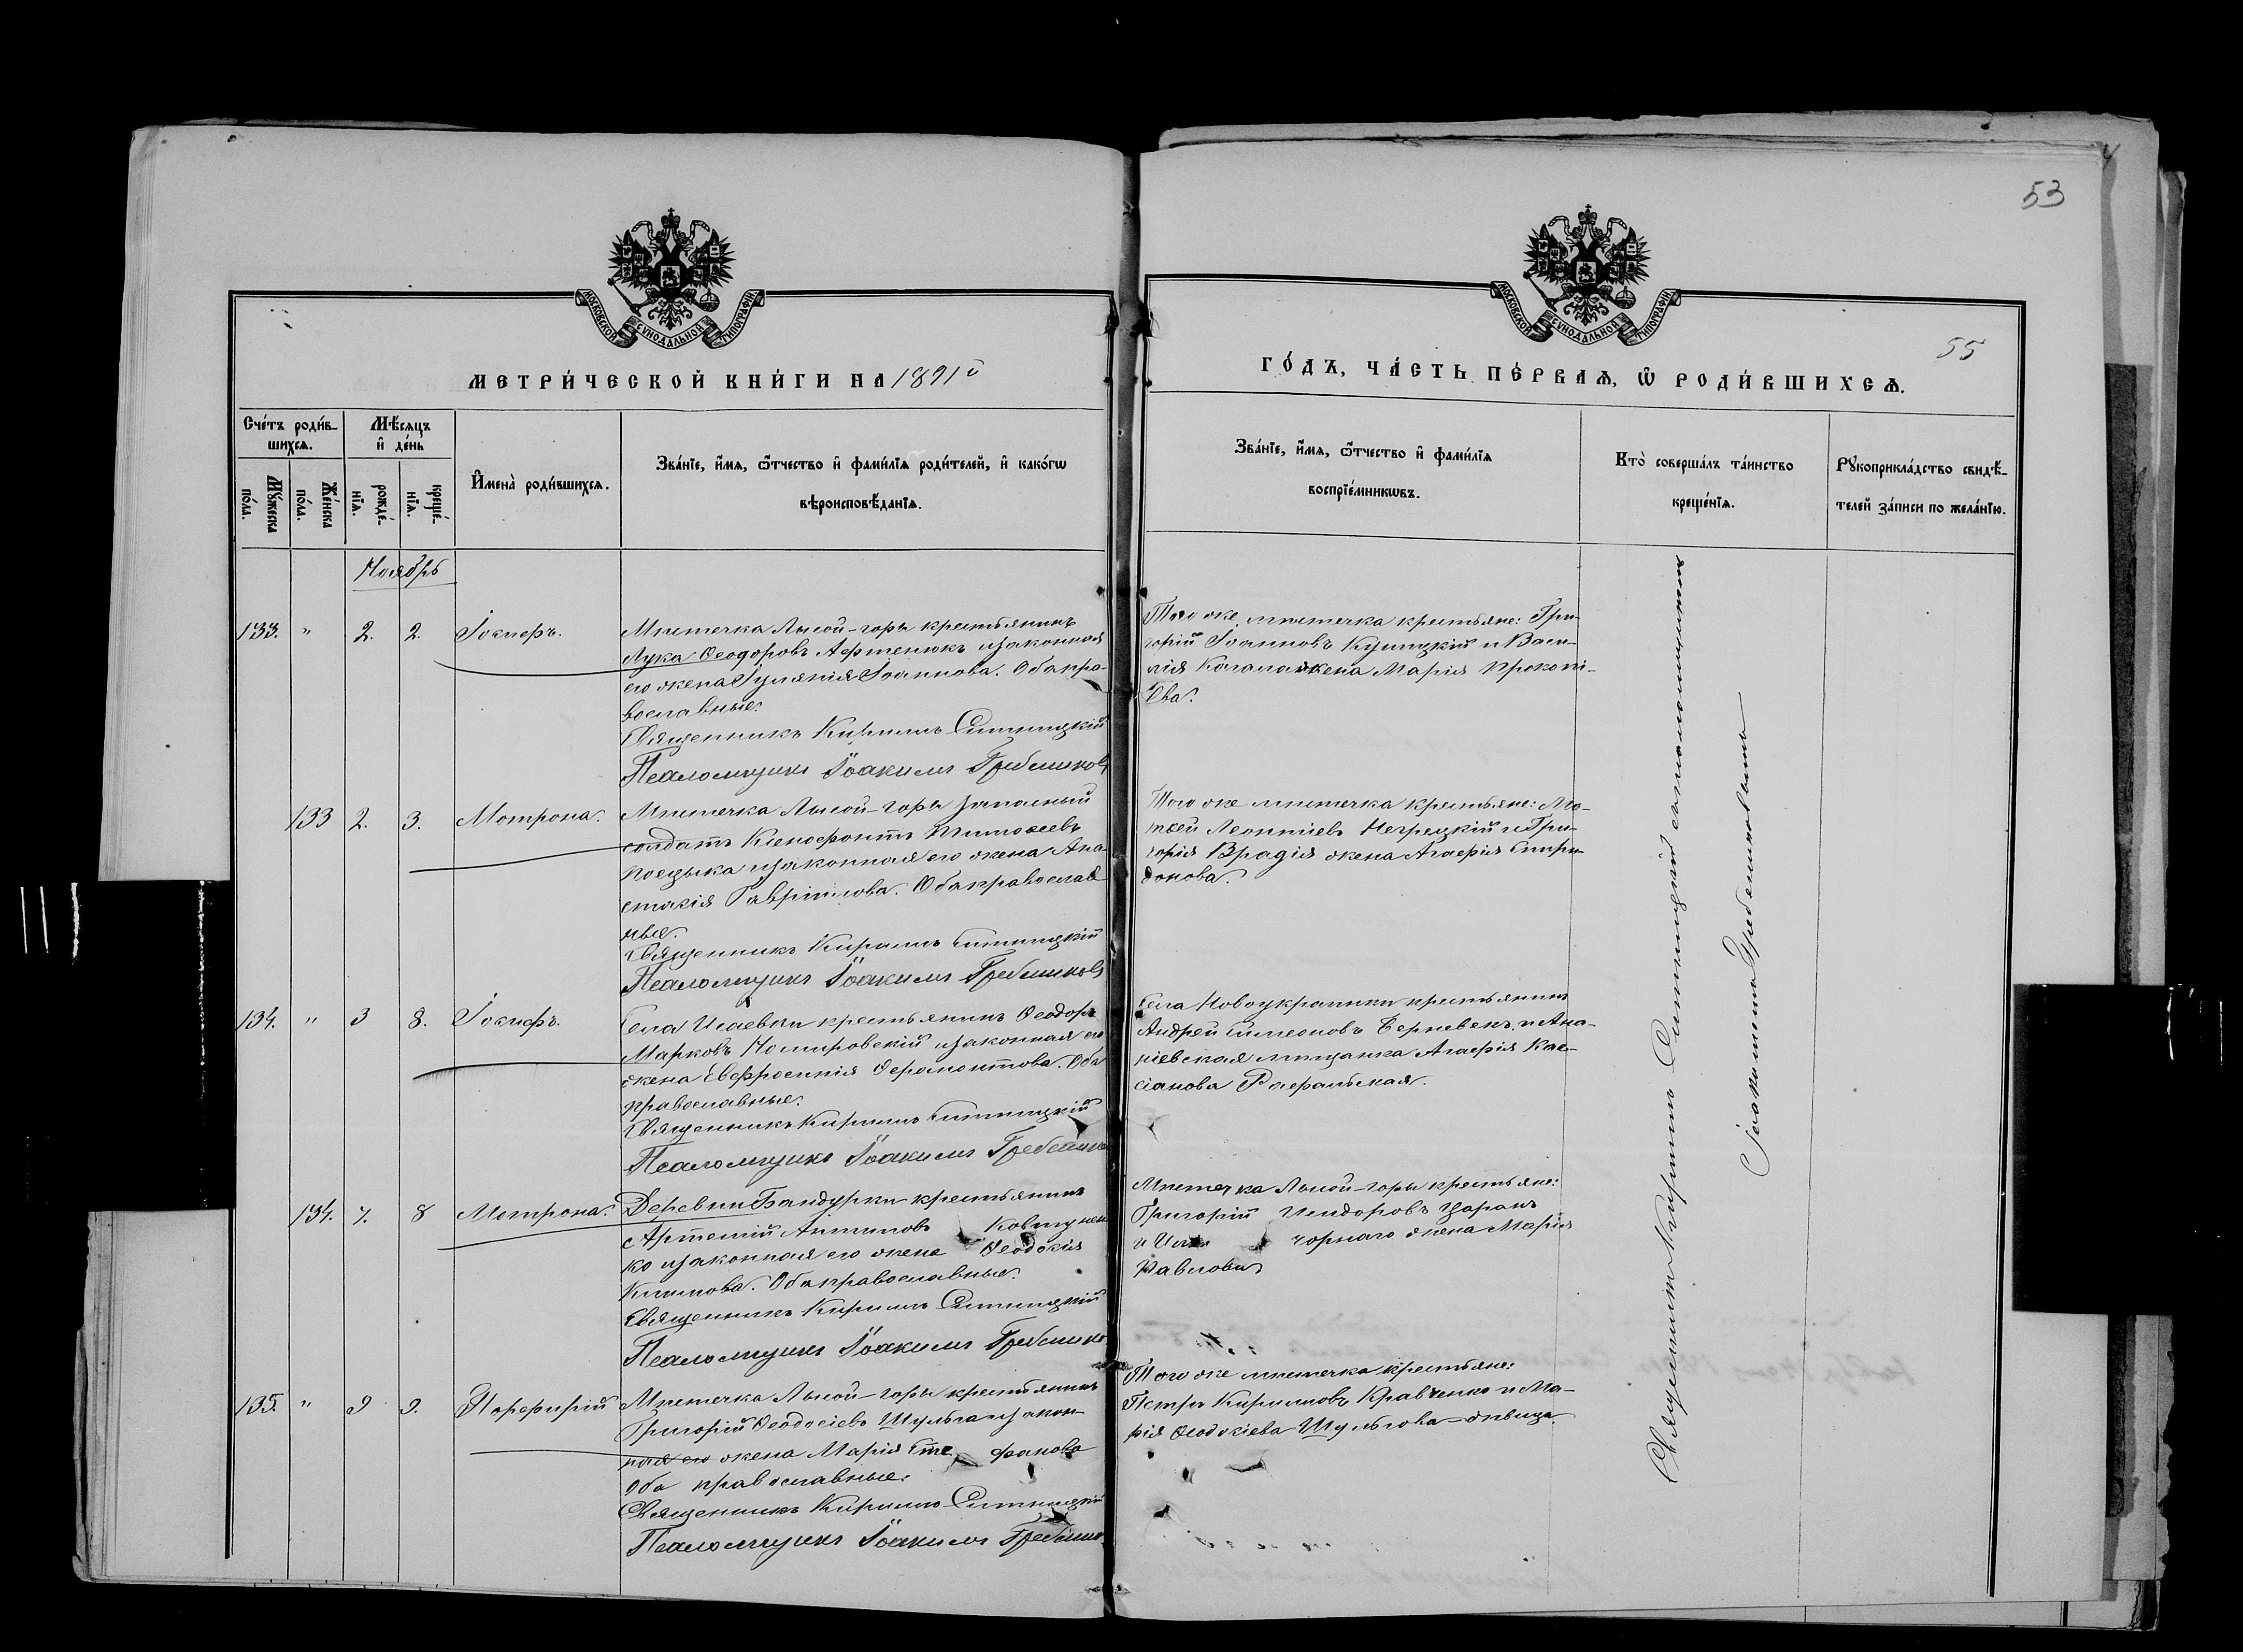 53
55
МОСКОВСКОЙ СѴНОДАЛЬНОЙ ТИПОГРАФІИ
МОСКОВСКОЙ СѴНОДАЛЬНОЙ ТИПОГРАФІИ
МЕТРИ́ЧЕСКОЙ КНИ́ГИ НА 1891й
ГО́ДЪ, ЧА́СТЬ ПЕ́РВАѦ, Ѡ҆ РОДИ́ВШИХСѦ.
Сче́тъ роди́в-
шихсѧ.
Мꙋ́жеска по́ла.
Же́нска по́ла.
Мѣ́сѧцъ
и҆ де́нь
рожде́-
нїѧ.
креще́-
нїѧ.
И҆мена̀ роди́вшихсѧ.
Зва́нїе, и҆́мѧ, ѻ҆́тчество и҆ фами́лїѧ роди́телей, и҆ како́гѡ
вѣроисповѣ́данїѧ.
Зва́нїе, и҆́мѧ, ѻ҆́тчество и҆ фами́лїѧ
воспрїе́мникѡвъ.
Кто̀ соверша́лъ та́инство
креще́нїѧ.
Рꙋкоприкла́дство свидѣ́-
телей за́писи по жела́нїю.
Ноябрь
133. " 2. 2. Іосифъ.
Мѣстечка Лысой-горы крестьянинъ
Лука Ѳеодоровъ Афтенюкъ и законная
его жена Іулянія Іоаннова. Оба пра-
вославные.
Священникъ Кириллъ Ситницкій
Псаломщикъ Іоакимъ Гребениковъ
Того же мѣстечка крестьяне: Гри-
горій Іоанновъ Куницкій и Васи-
лія жена Марія Прокопі-
ева.
133 2. 3. Мотрона.
Мѣстечка Лысой-горы запасный
солдатъ Ксенофонтъ Тимоѳеевъ
и законная его жена Ана-
стасія Гавріилова. Оба православ
ные.
Священникъ Кириллъ Ситницкій
Псаломщикъ Іоакимъ Гребениковъ
Того же мѣстечка крестьяне: Мо-
ѵсей Леонтіевъ Негрецкій и Гри-
горія Врадія жена Агафія Спири-
донова.
134. " 3 8. Іосифъ.
Села Исаевки крестьянинъ Ѳеодоръ
Марковъ Немировскій и законная его
жена Евфросинія Ѳерапонтова. Оба
православные.
Священникъ Кириллъ Ситницкій
Псаломщикъ Іоакимъ Гребенико
Села Новоукраинки крестьянинъ
Андрей Симеоновъ и Ана-
ніевская мѣщанка Агафія Кас-
сіанова
134. 7. 8 Мотрона.
Деревни Бандурки крестьянинъ
Артемій Антиповъ Ковтунен
ко и законная его жена Ѳеодосія
Климова. Оба православные.
Священникъ Кириллъ Ситницкій
Псаломщикъ Іоакимъ Гребенико
Мѣстечка Лысой-горы крестьяне:
Григорій Исидоровъ Царанъ
и Чорнаго жена Марія
Павлова
135. " 9 9. Порфирій
Мѣстечка Лысой-горы крестьянинъ
Григорій Ѳеодосіевъ Шульга и закон-
ная его жена Марія Сте фанова
Оба православные.
Священникъ Кириллъ Ситницкій
Псаломщикъ Іоакимъ Гребенико
Того же мѣстечка крестьяне:
Петръ Кирилловъ Кравченко и Ма-
рія Ѳеодосіева Шульгова-дѣвица.
Священникъ Кириллъ Ситницкій съ псаломщикомъ
Іоакимомъ Гребениковымъ